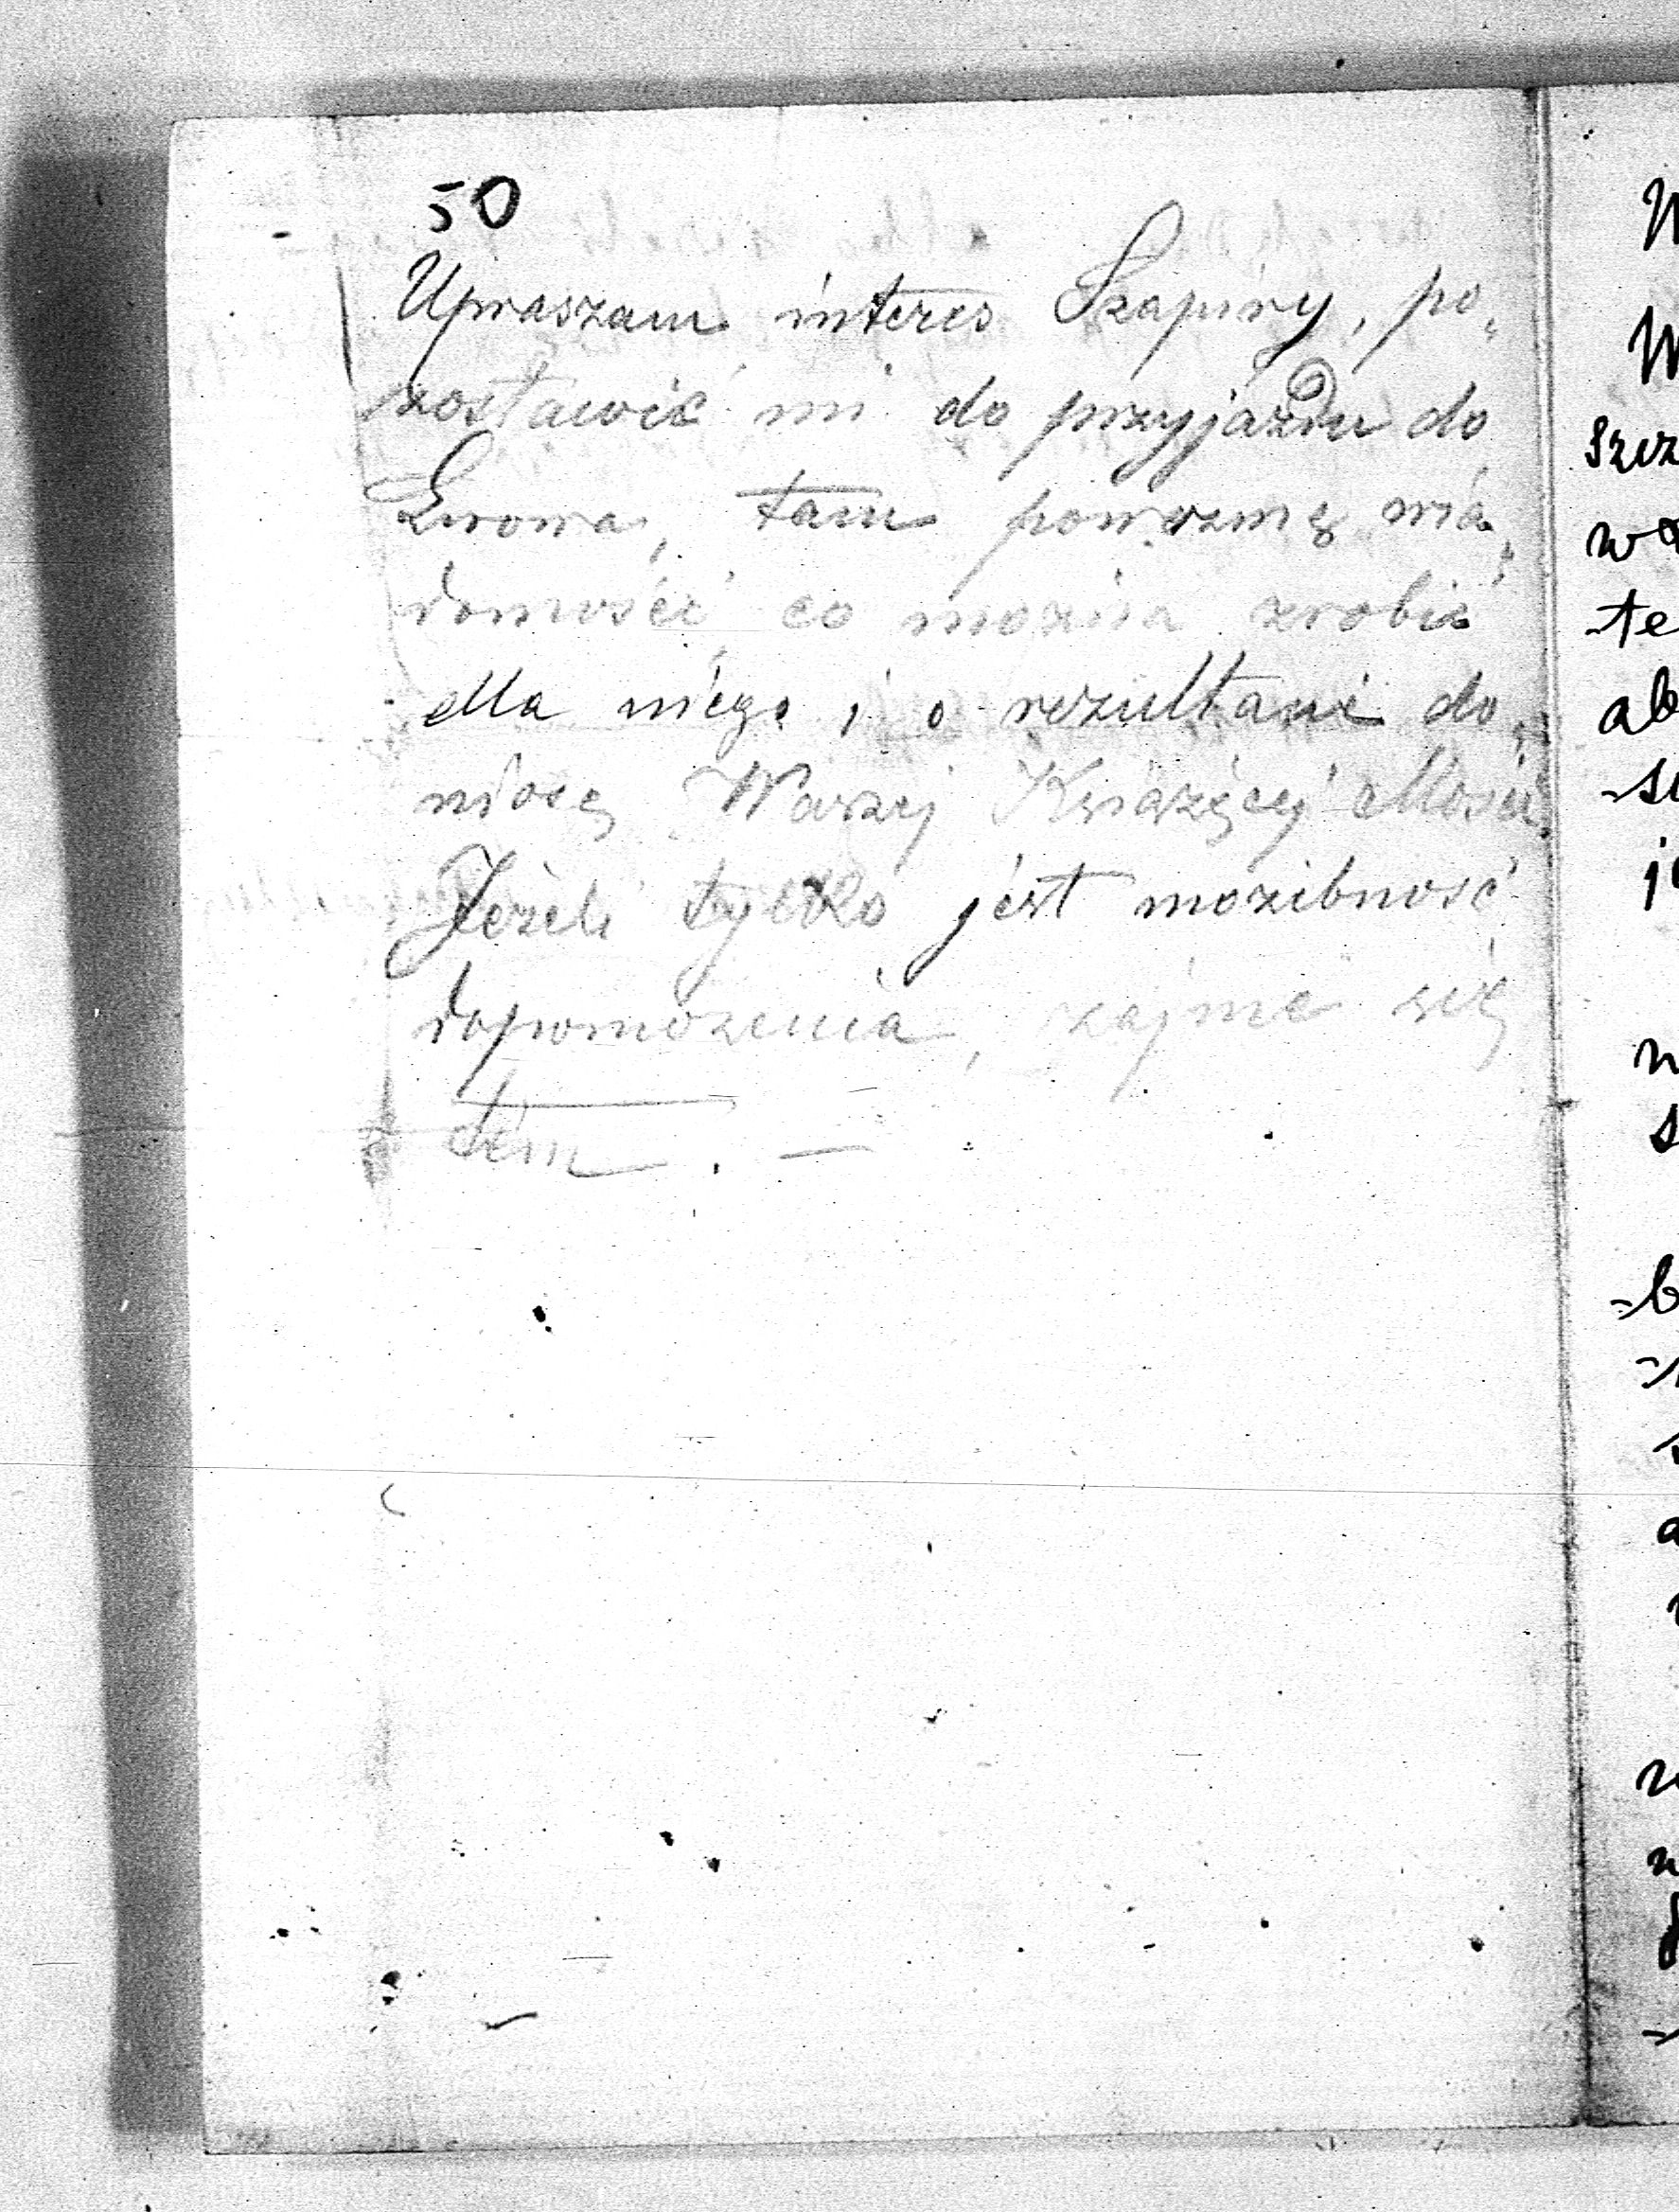 50
Upraszam interes Szapiry, po„
zostawić mi do przyjazdu do
Lwowa, tam powezmę wia„
domość co można zrobić
dla niego i o rezultacie do„
niosę Waszej Książęcej Mości.
Jeżeli tylko jest możebność
dopomożenia, zajmę się
tem. —